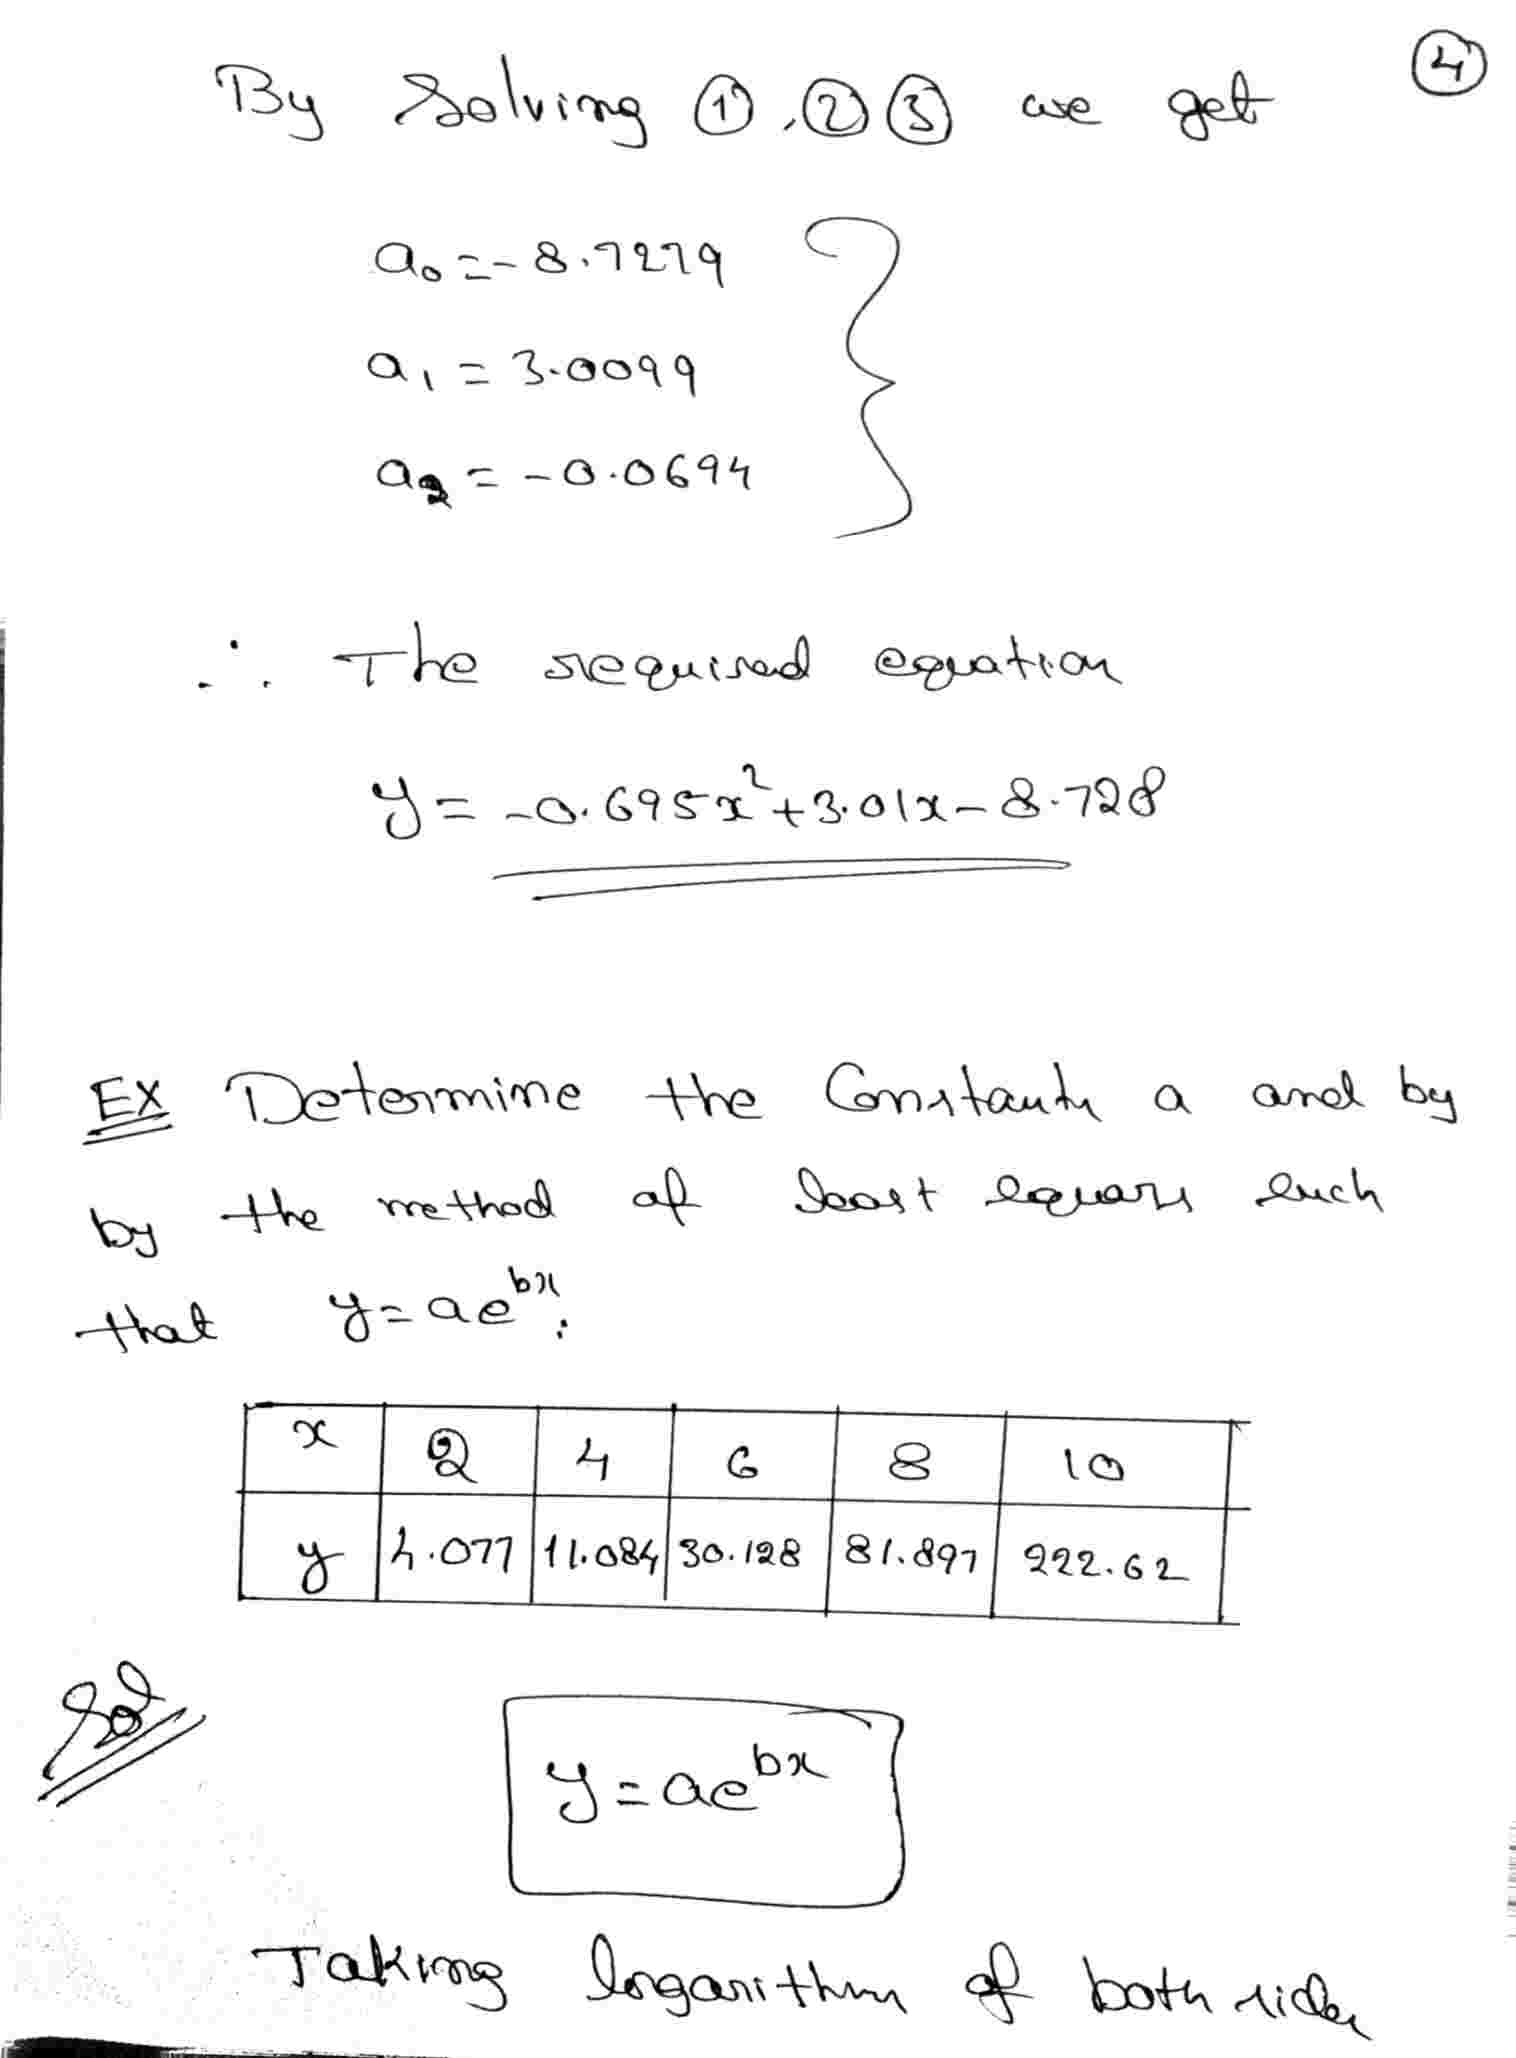 4
By Solving ①, ② ③ we get
a₀ = -8.7279
a₁ = 3.0099
a₂ = -0.0694
∴ The required equation
y = -0.695x² + 3.01x - 8.728
Ex Determine the Constants a and by
by the method of least squares such
that y = ae^{bx}:
x 2 4 6 8 10
y 4.077 11.084 30.128 81.897 222.62
Sol
y = ae^{bx}
Taking logarithm of both sides